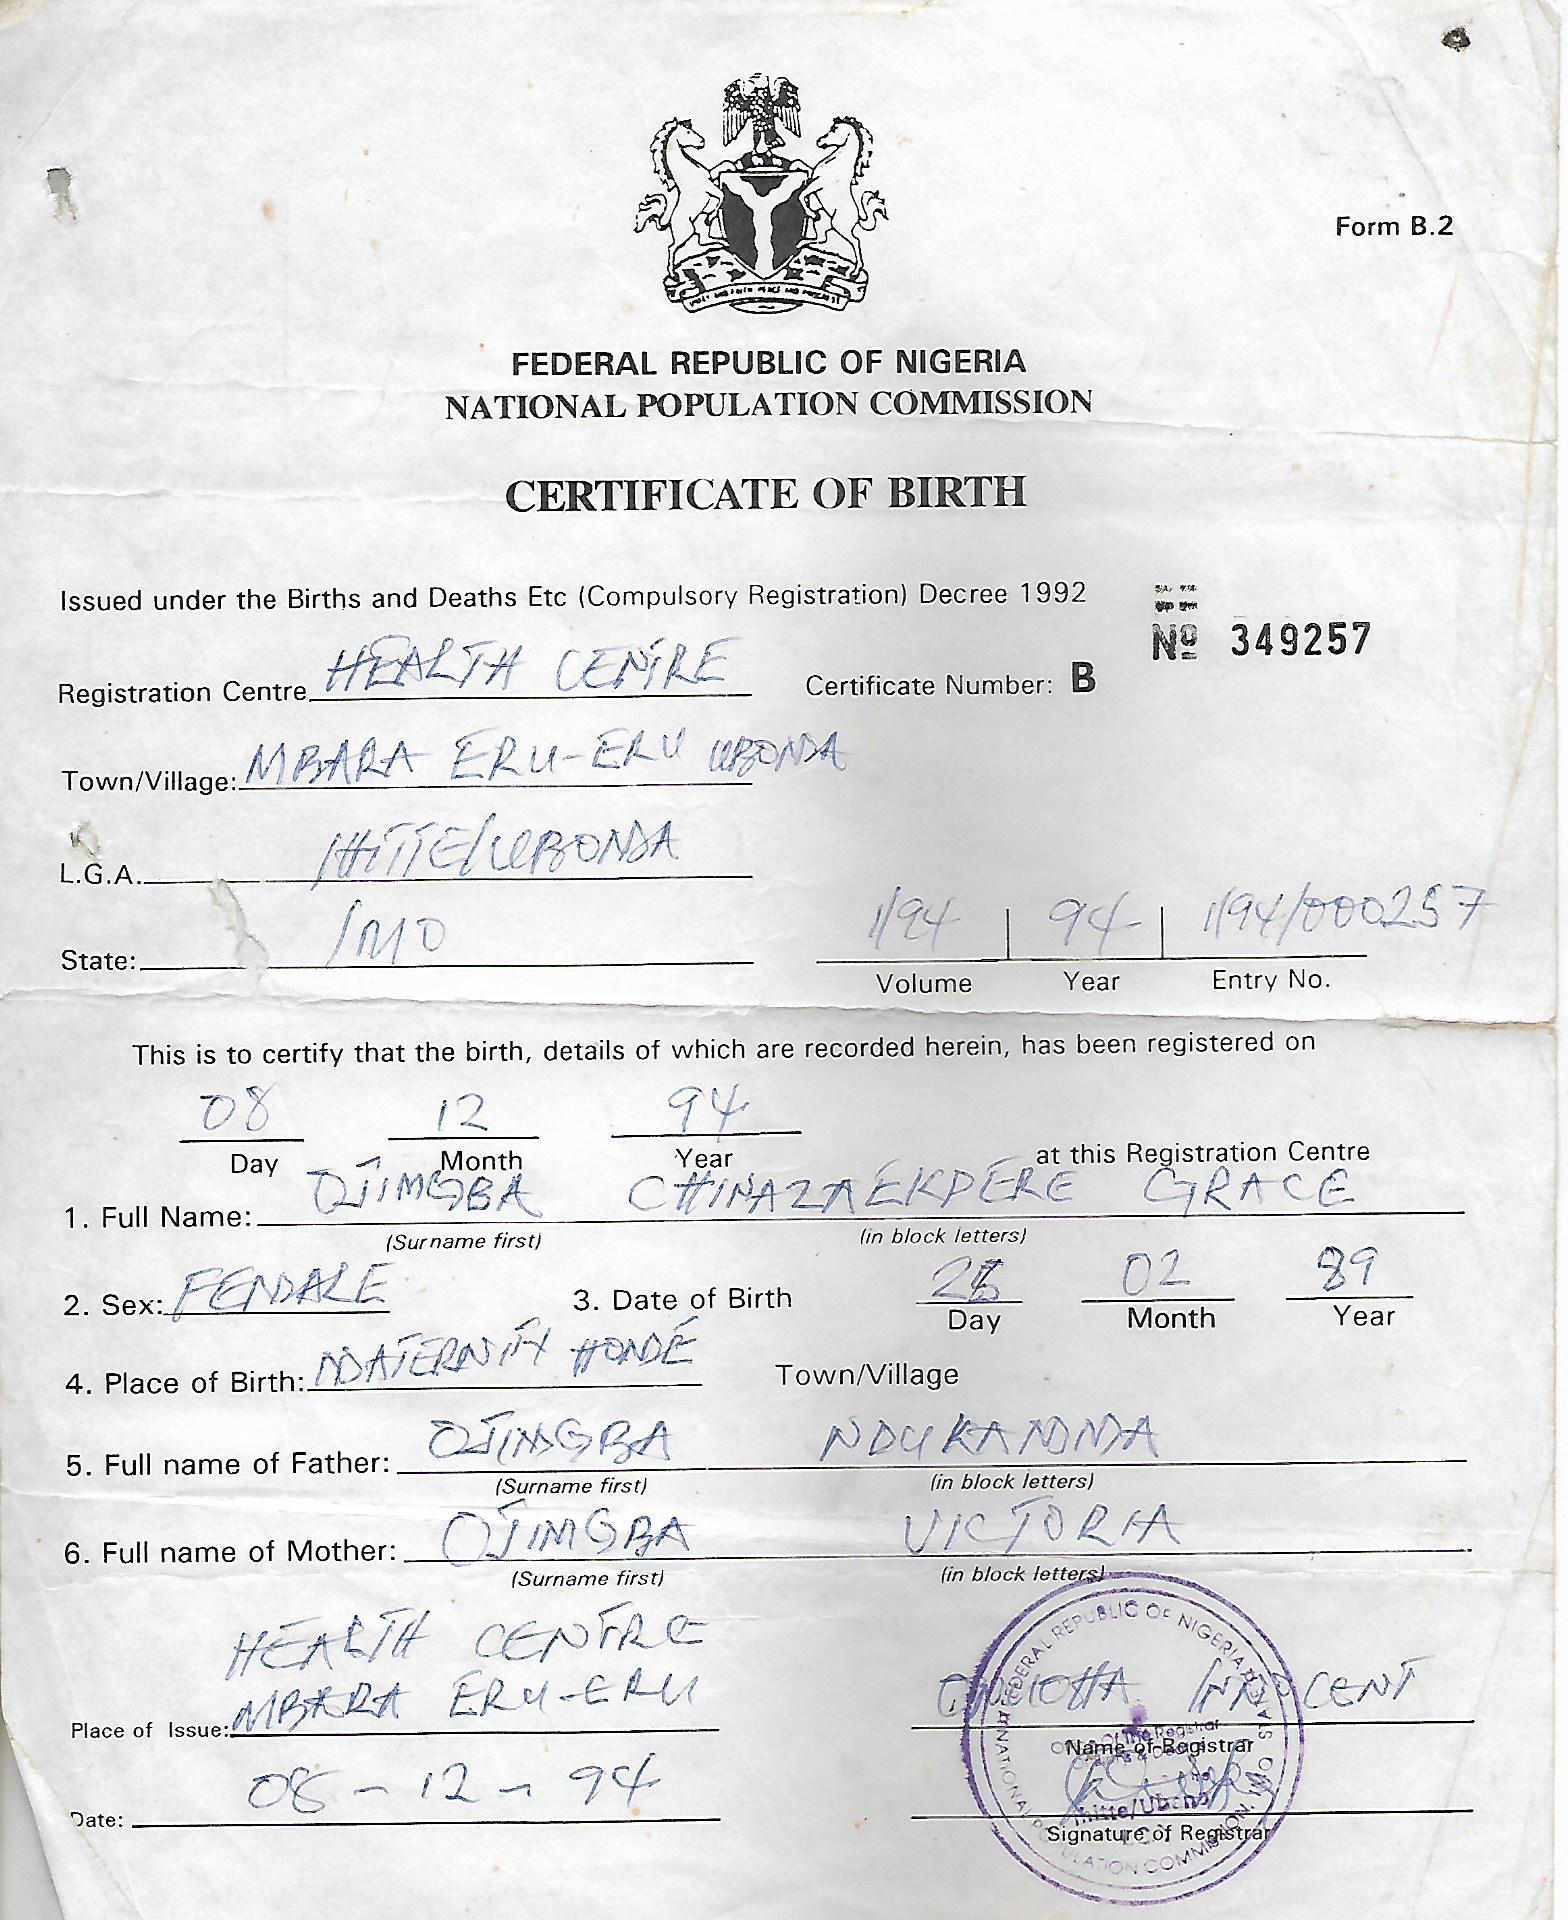 Form B.2
FEDERAL REPUBLIC OF NIGERIA
NATIONAL POPULATION COMMISSION
CERTIFICATE OF BIRTH
Issued under the Births and Deaths Etc (Compulsory Registration) Decree 1992
Nº 349257
Registration Centre HEALTH CENTRE Certificate Number: B
Town/Village: MBARA ERU-ERU UBOMA
L.G.A. IHITTE/UBOMA
State: IMO
1/94 94 1/94/000257
Volume Year Entry No.
This is to certify that the birth, details of which are recorded herein, has been registered on
08 12 94
Day Month Year at this Registration Centre
1. Full Name: OJIMGBA CHINAZAEKPERE GRACE
(Surname first) (in block letters)
2. Sex: FEMALE 3. Date of Birth 02 89
Day Month Year
4. Place of Birth: MATERNITY HOME Town/Village
5. Full name of Father: OJIMGBA NDUKAMMA
(Surname first) (in block letters)
6. Full name of Mother: OJIMGBA VICTORIA
(Surname first) (in block letters)
HEALTH CENTRE
Place of Issue: MBARA ERU-ERU INNOCENT
Name of Registrar
Date: 08-12-94
Signature of Registrar
FEDERAL REPUBLIC OF NIGERIA
NATIONAL POPULATION COMMISSION